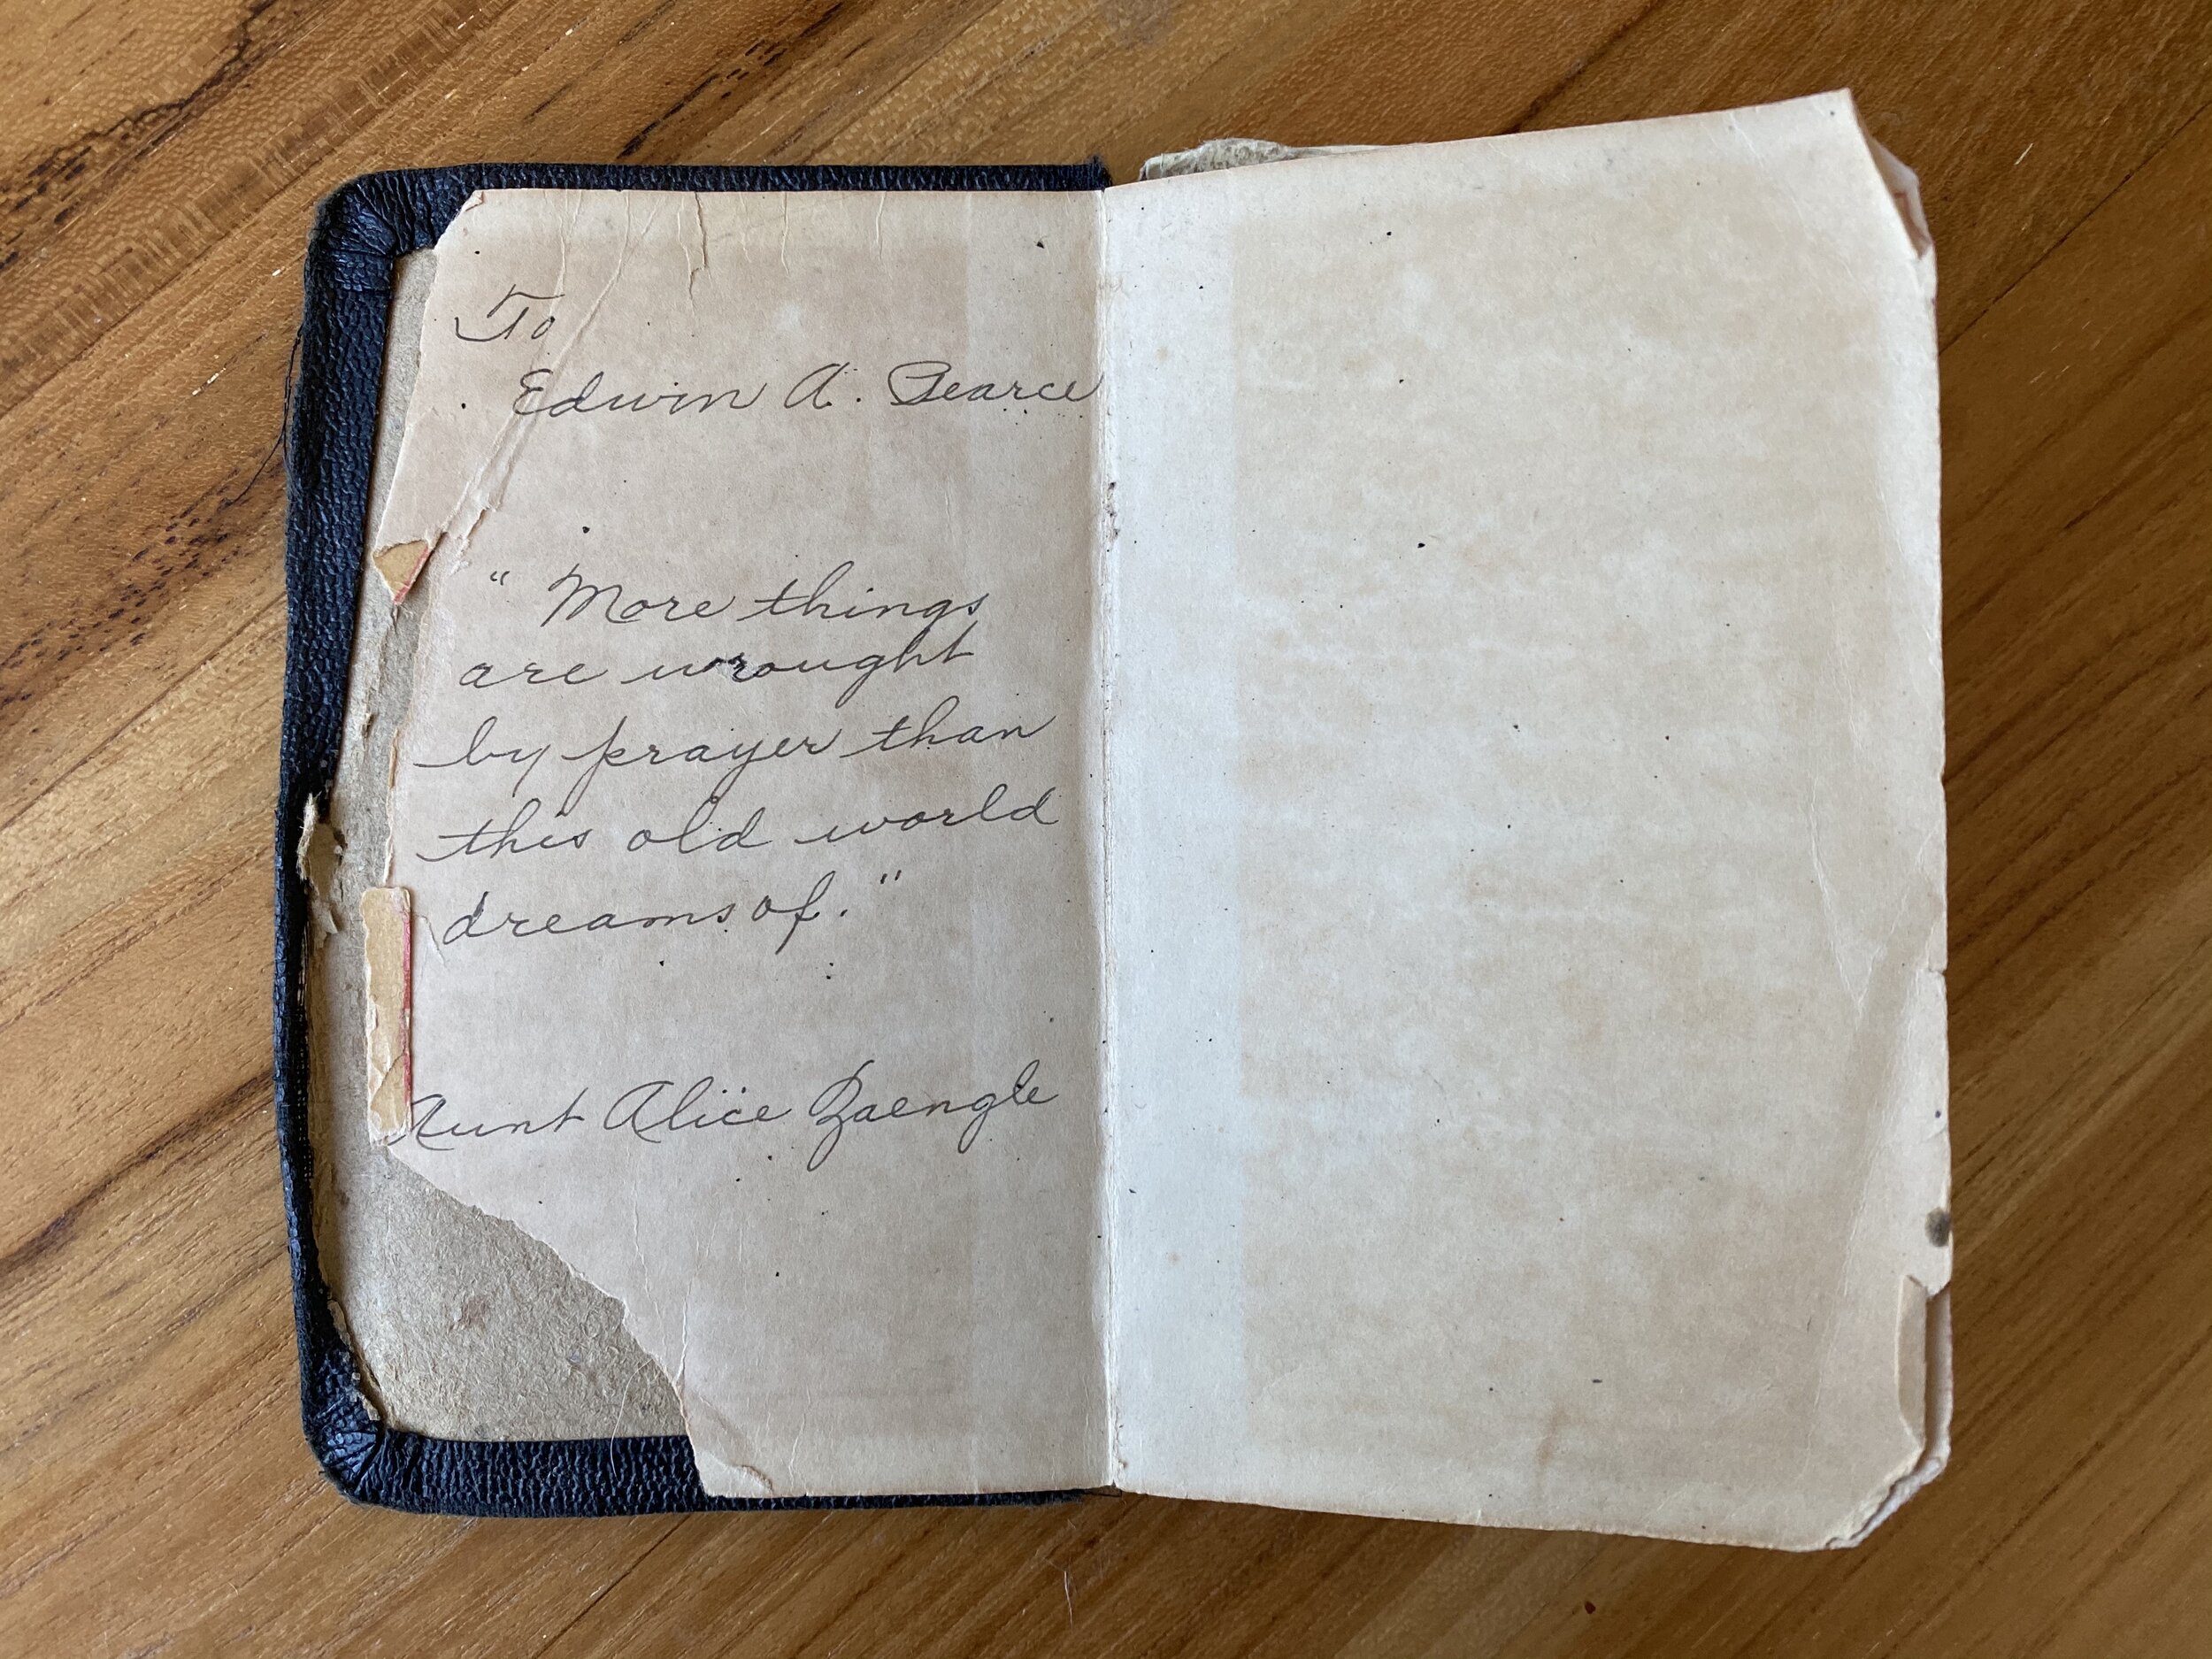 To
Edwin A. Pearce
" More things
are wrought
by prayer than
this old world
dreams of."
Aunt Alice Zaengle